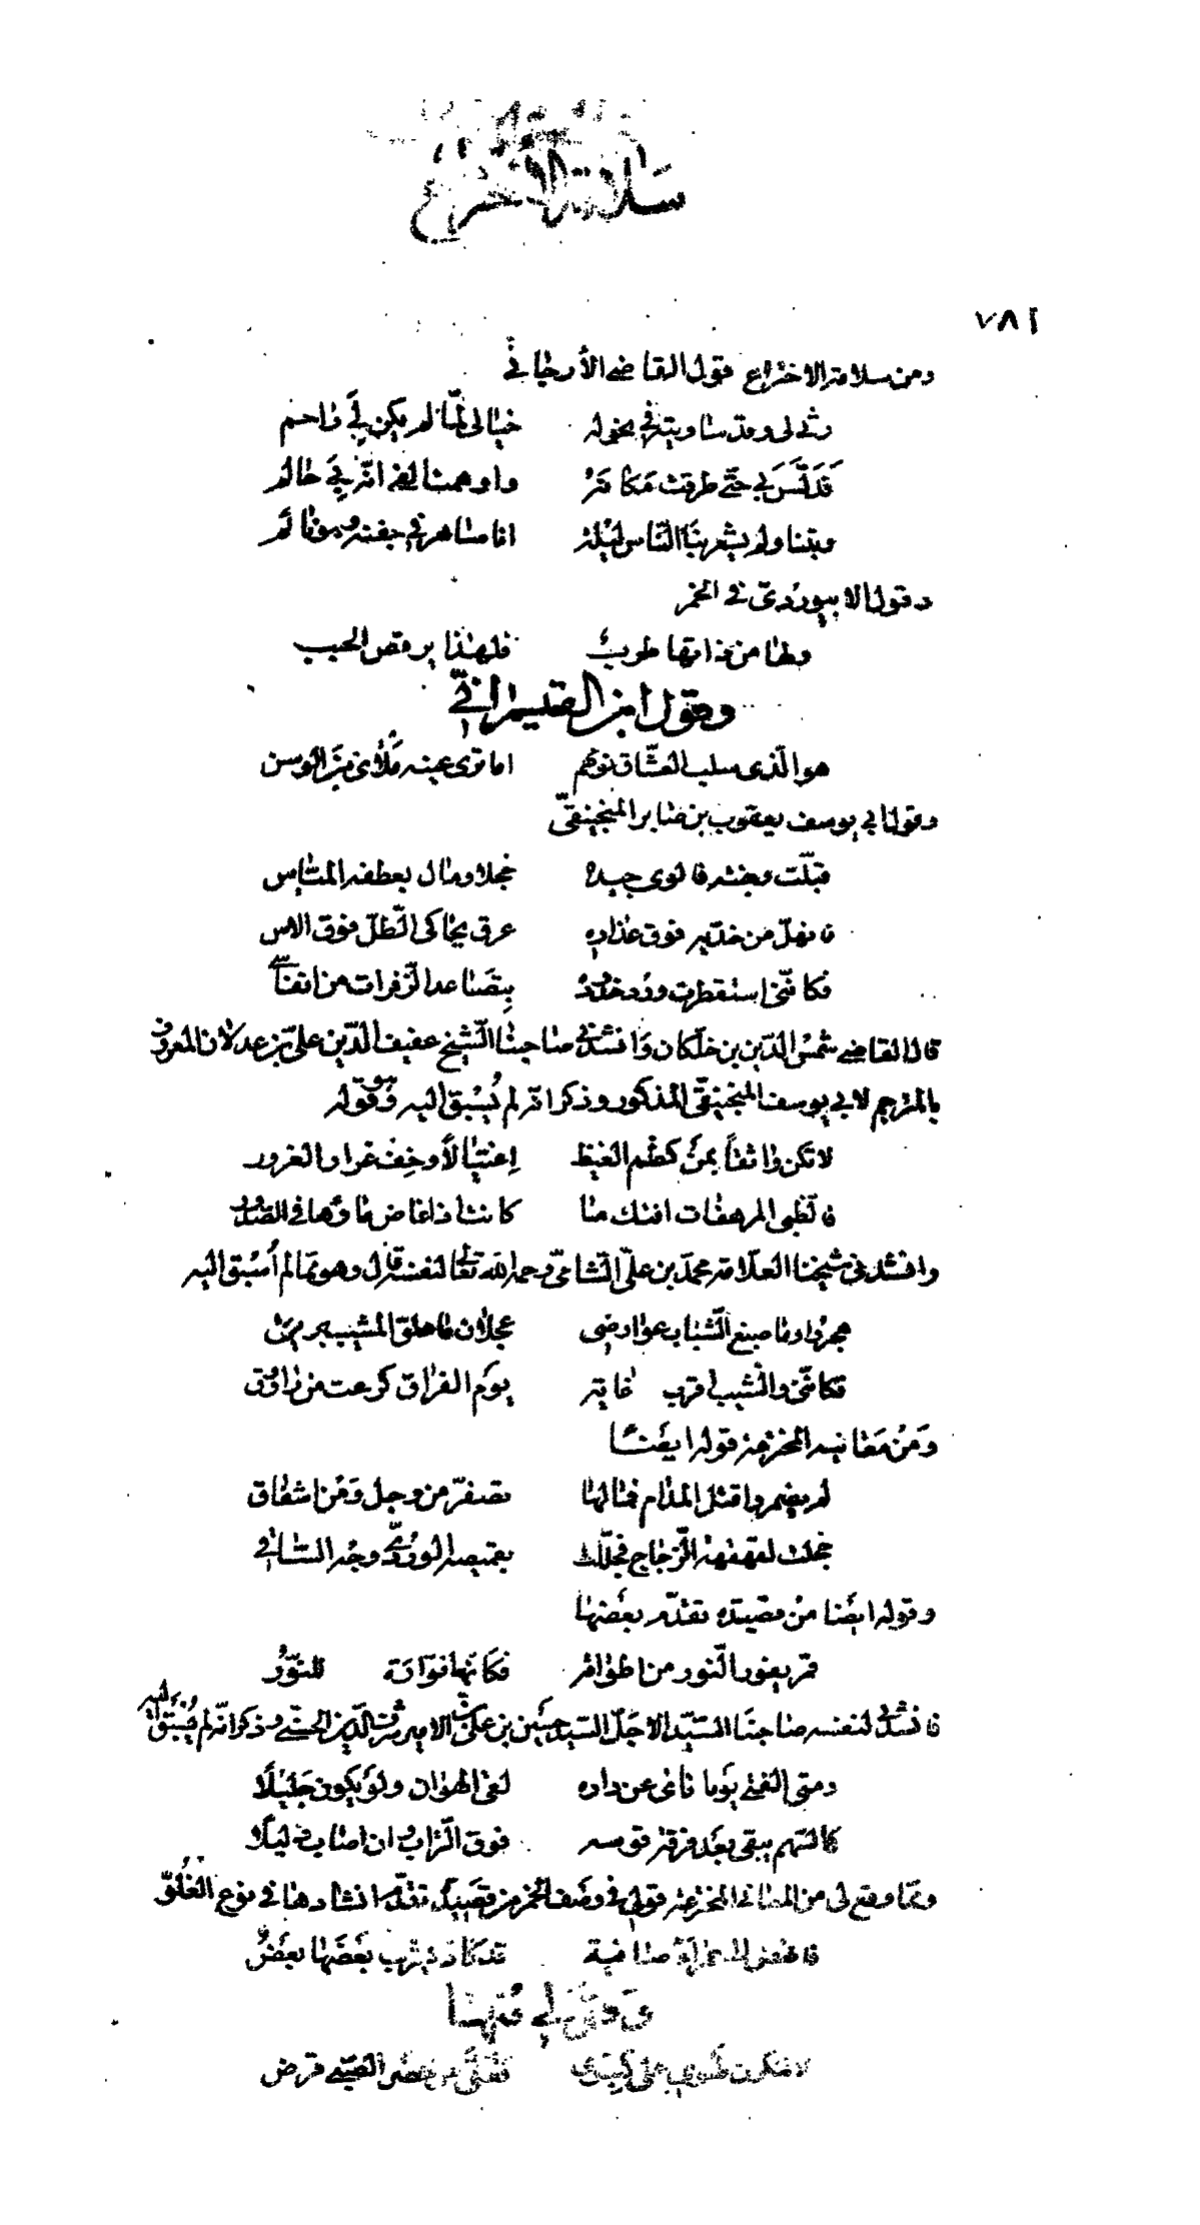 سلامة الاختراع
٧٨٦
ومن سلامة الاختراع قول القاضي الأرجاني
رثى لي وقد ساويته في نحوله خيالي لما لم يكن لي راحم
فدلّس بي حتى طرقت مكانه واوهمت الفي انه بي حالم
وبتنا ولم يشعر بنا الناس ليلة انا ساهر في جفنه وهو نائم
وقول الابيوردي في الخمر
ولها من ذاتها طرب فلهذا يرقص الحبب
وقول ابن القيسراني
هو الذي سلب العشاق نومهم اما ترى عينه ملأى من الوسن
وقول ابي يوسف يعقوب بن صابر المنجنيقي
قبلت وجنته فالوى جيده خجلا ومال بعطفه المياس
فانهل من خديه فوق عذاره عرق يحاكي الطل فوق الاس
فكانني استقطرت ورد خدوده بتصاعد الزفرات من انفاسي
قال القاضي شمس الدين بن خلكان وانشدني صاحبنا الشيخ عفيف الدين علي بن عدلان المعروف
بالمترجم لابي يوسف المنجنيقي المذكور وذكر انه لم يسبق اليه وهو قوله
لا تكن واثقا بمن كظم الغيظ اغتيالا وخف غرار الغرور
فالظبى المرهفات افتك ما كانت اذا غاض ماؤها في الصدور
وانشدني شيخنا العلامة محمد بن علي الشامي رحمه الله تعالى لنفسه قال وهو مما لم أسبق اليه
هجروا وما صبغ الشباب عوارضي عجلان ما علق المشيب
فكانني والشيب اقرب غاية يوم الفراق كرعت من راووق
ومن معانيه المخترعة قوله ايضا
لم يضمروا قتل المدام فمالها تصفر من وجل ومن اشفاق
خجلت لقهقهة الزجاج فجللت بقميصه الوردي وجه الساقي
وقوله ايضا من قصيدة تقدم بعضها
قمر يفور النور من اطرافه فكانها فوارة للنور
وانشدني لنفسه صاحبنا السيد الاجل السيد حسين بن علي بن الامير شرف الدين الحسني وذكر انه لم يسبق اليه
ومتى الفتى يوما نأى عن داره لقي الهوان ولو يكون جليلا
كالسهم يبقى بعد فرقة قوسه فوق التراب وان اصاب ذليلا
ومما وقع لي من المعاني المخترعة قولي في وصف الخمر من قصيدة تقدم انشادها في نوع الغلو
صافية قد كاد يشرب بعضها بعض
وقولي منها
لا تنكرن على كبدي قرض